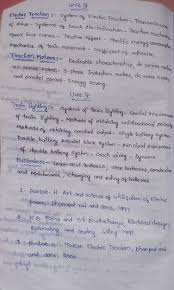 Unit IV
Electric Traction :- System of Electric Traction - Transmission
of drive - Systems of track electrification - Traction mechanics
speed time curves - Tractive effort - Specific energy consumption
Mechanics of train movement - coefficient of adhesion
Traction Motors :- Desirable characteristics, d.c series motors,
a.c series motors - 3-phase Induction motors, dc motor series
and parallel control - Energy saving.
Unit-V
Train lighting :- Systems of train lighting - special requirements
of train lighting - Methods of obtaining unidirectional polarity
Methods of obtaining constant output - single battery system
Double battery parallel block system - principal equipment
of double battery system - Coach wiring - Dynamo
Batteries :- Lead-acid batteries - construction
and Maintenance, charging and rating of batteries
1. Partab. H. Art and science of Utilization of Electric
power, Dhanpat rai and sons, 1997.
2. K.B. Raina and S.K. Bhattacharya Electrical design
Estimating and costing Wiley 1991
3. Modern Electric Traction, Dhanpat rai
and sons,